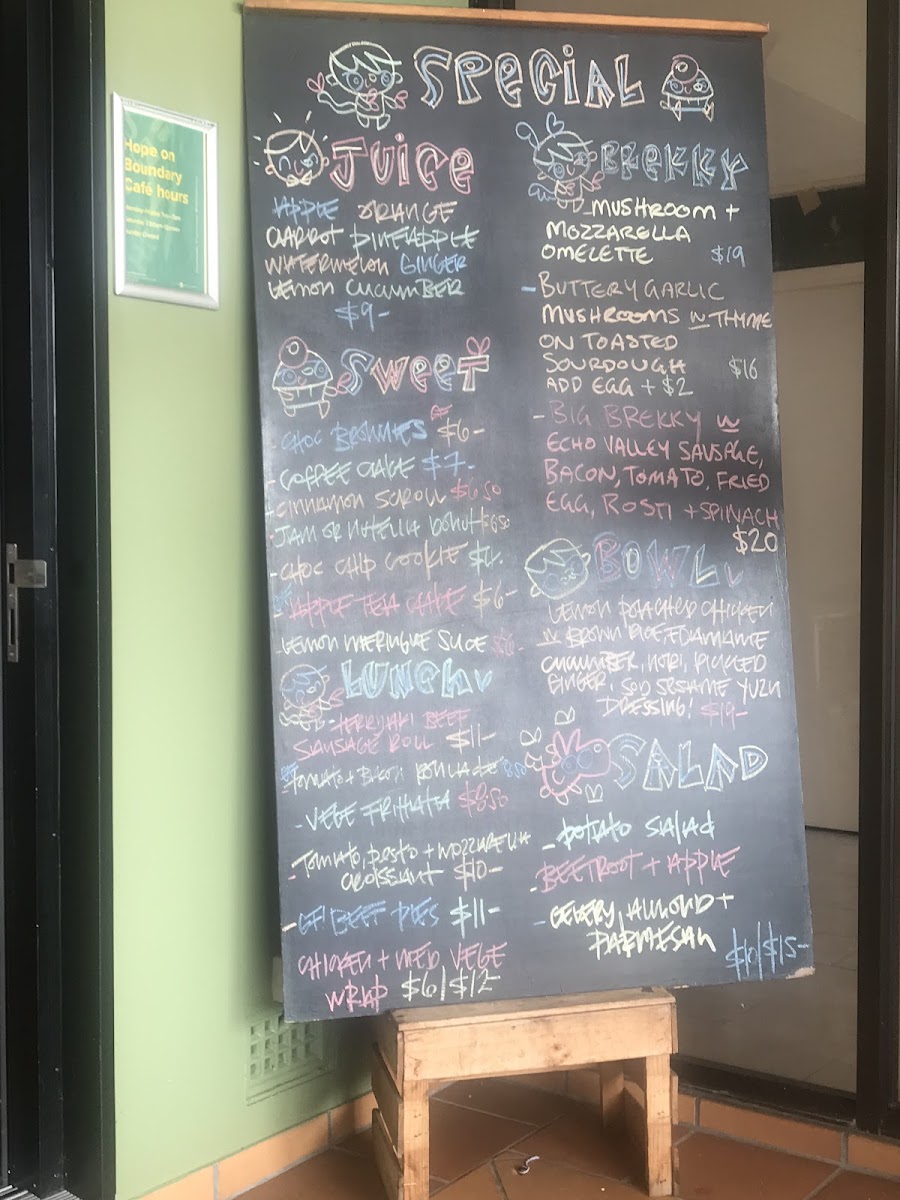 Hope on
Boundary
Café hours
SPECIAL
JUICE
APPLE ORANGE
CARROT PINEAPPLE
WATERMELON GINGER
LEMON CUCUMBER
$9-
SWEET
- CHOC BROWNIES GF $6-
- COFFEE CAKE $7-
- CINNAMON SCROLL $6.50
- JAM OR NUTELLA DONUT $6.50
- CHOC CHIP COOKIE $4-
- APPLE TEA CAKE $6-
- LEMON MERINGUE SLICE
LUNCH
- TERIYAKI BEEF
SAUSAGE ROLL $11-
TOMATO + BACON
- VEGE FRITTATA $8.50
- TOMATO, PESTO + MOZZARELLA
CROISSANT $10-
- GF BEEF PIES $11-
CHICKEN + MED VEGE
WRAP $6/$12
BREKKY
- MUSHROOM +
MOZZARELLA
OMELETTE $19
- BUTTERY GARLIC
MUSHROOMS W THYME
ON TOASTED
SOURDOUGH $16
ADD EGG + $2
- BIG BREKKY W
ECHO VALLEY SAUSAGE,
BACON, TOMATO, FRIED
EGG, ROSTI + SPINACH
$20
BOWL
LEMON POACHED CHICKEN
W BROWN RICE, EDAMAME
CUCUMBER, NORI, PICKLED
GINGER, SOY SESAME YUZU
DRESSING! $19-
SALAD
- POTATO SALAD
- BEETROOT + APPLE
- CELERY, ALMOND +
PARMESAN
$10/$15-